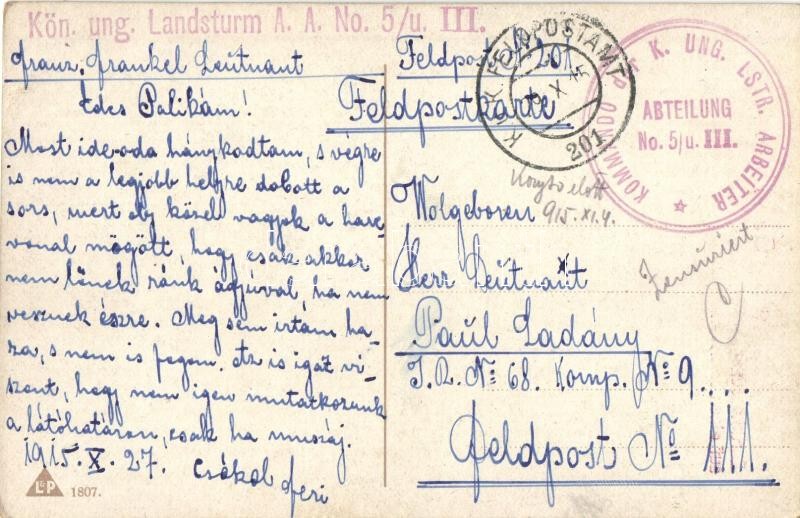 Kön. ung. Landsturm A. A. No. 5/u. III.
Franz Frankel Leutnant
Édes Palikám!
Most ide-oda hánykodtam, s végre
is nem a legjobb helyre dobott a
sors, mert oly közel vagyok a harc-
vonal mögött, hogy csak akkor
nem lőnek ránk ágyúval, ha nem
vesznek észre. Még sem irtam ha-
za, s nem is fogom. Az is igaz vi-
szont, hogy nem igen mutatkozunk
a látóhatáron, csak ha muszáj.
1915. X. 27. Csókol
Feri
L&P
1807.
Feldpost No 201
Feldpostkarte
K.u.K. FELDPOSTAMT
X 15
201
K. UNG. LSTR. ARBEITER
ABTEILUNG
No. 5/u. III.
KOMMANDO
előtt
915. XI. 4.
Wolgeboren
Herr Leutnant
Paul Ladány
I. R. No 68. Komp. No 9....
Feldpost No 111.
Zensuriert